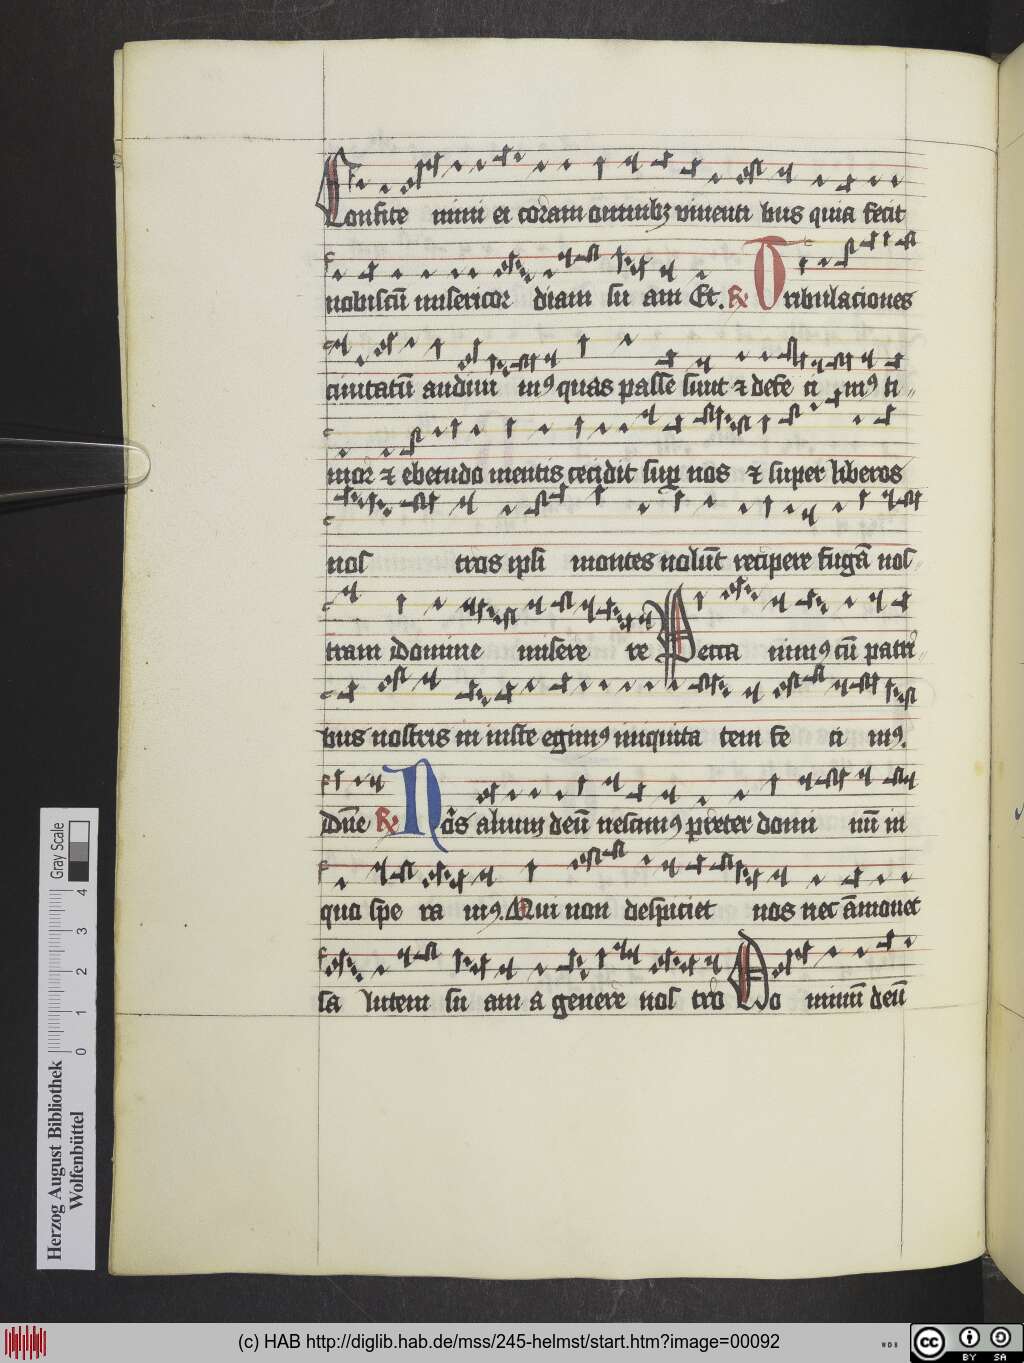 Confite mini et coram omnibꝫ viuenti bus quia fecit
nobiscū misericor diam su am Et. ℟ Tribulaciones
ciuitatū audiui mꝰ quas passe sunt ⁊ defe ci mꝰ ti
mor ⁊ ebetudo mentis cecidit suꝑ nos ⁊ super liberos
nos tros ipsi montes nolūt recipere fugā nos
tram Domine misere re Pecca uimꝰ cū patri
bus nostris in iuste egimꝰ iniquita tem fe ci mꝰ.
Dn̄e ℟ Nos alium deū nescimꝰ preter domi nū in
quo spe ra mꝰ. Qui non despiciet nos nec āmouet
sa lutem su am a genere nos tro Do minū deū
Herzog August Bibliothek
Wolfenbüttel
Gray Scale
0 1 2 3 4
(c) HAB http://diglib.hab.de/mss/245-helmst/start.htm?image=00092
WDB
cc BY SA